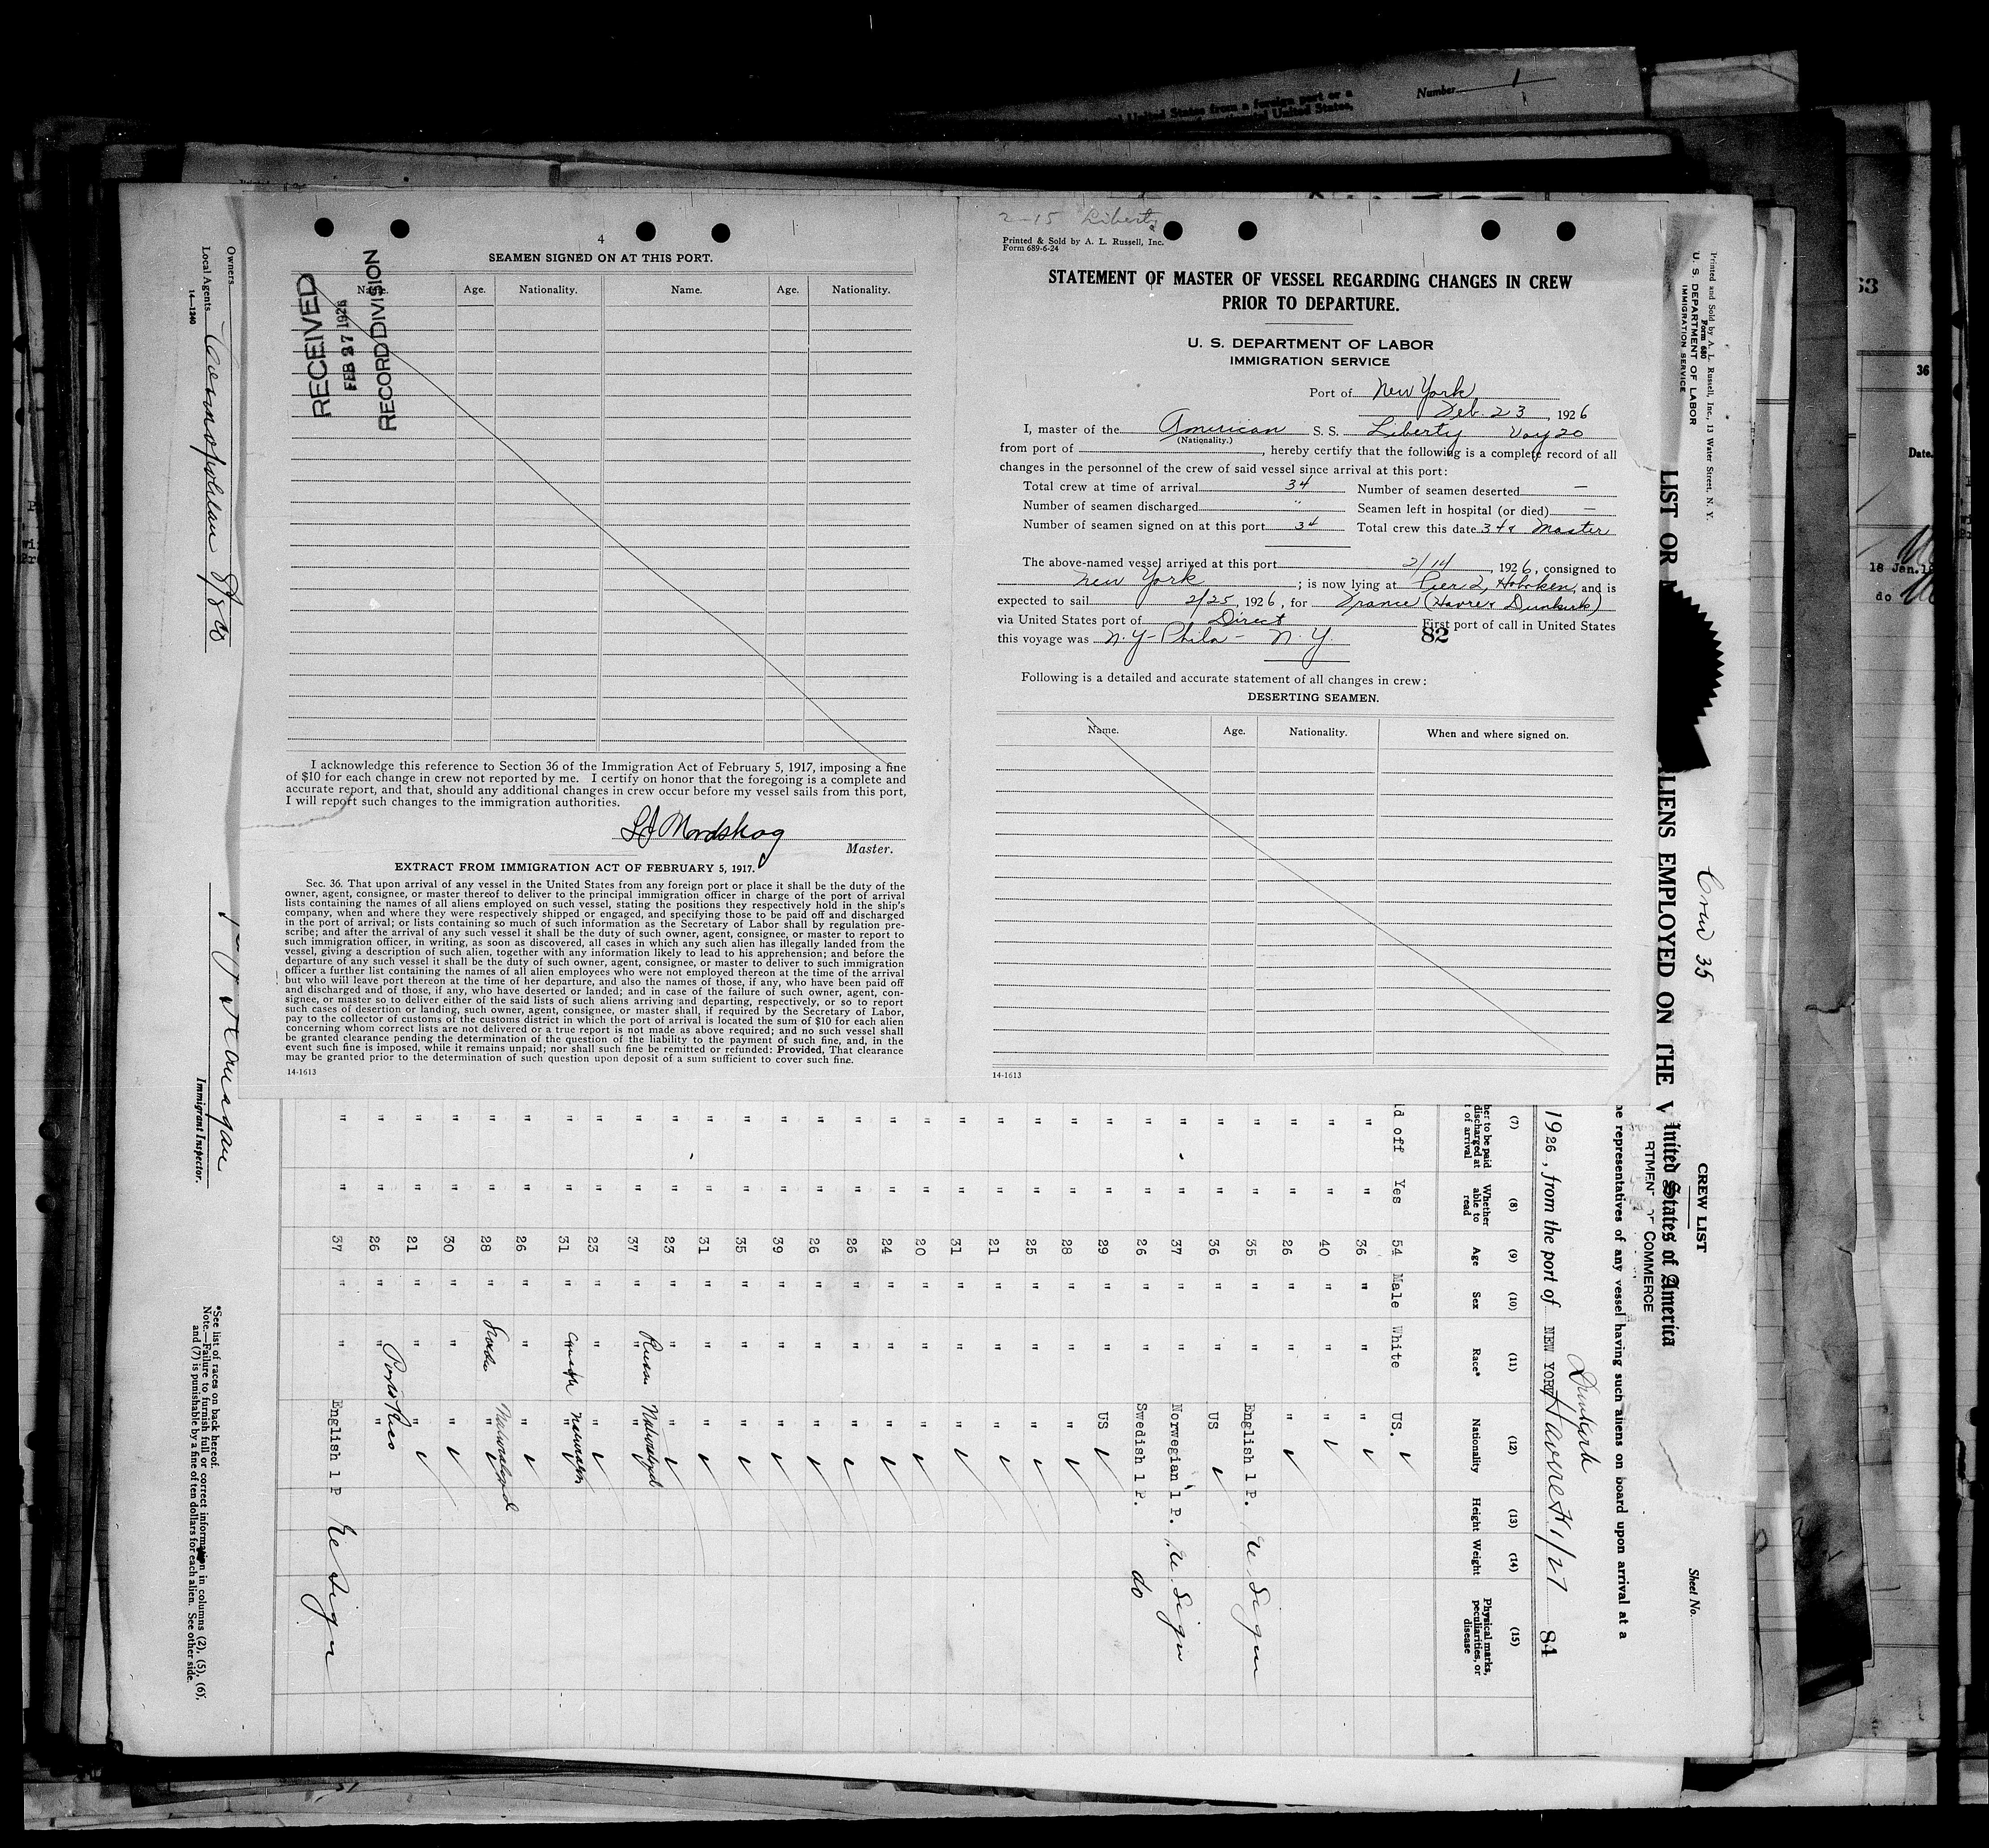 Number 1
United States from a foreign port or a
United States,
4
SEAMEN SIGNED ON AT THIS PORT.
Name. Age. Nationality. Name. Age. Nationality.
RECEIVED
FEB 27 1926
RECORD DIVISION
I acknowledge this reference to Section 36 of the Immigration Act of February 5, 1917, imposing a fine
of $10 for each change in crew not reported by me. I certify on honor that the foregoing is a complete and
accurate report, and that, should any additional changes in crew occur before my vessel sails from this port,
I will report such changes to the immigration authorities.
Nordskog
Master.
EXTRACT FROM IMMIGRATION ACT OF FEBRUARY 5, 1917.
Sec. 36. That upon arrival of any vessel in the United States from any foreign port or place it shall be the duty of the
owner, agent, consignee, or master thereof to deliver to the principal immigration officer in charge of the port of arrival
lists containing the names of all aliens employed on such vessel, stating the positions they respectively hold in the ship's
company, when and where they were respectively shipped or engaged, and specifying those to be paid off and discharged
in the port of arrival; or lists containing so much of such information as the Secretary of Labor shall by regulation pre-
scribe; and after the arrival of any such vessel it shall be the duty of such owner, agent, consignee, or master to report to
such immigration officer, in writing, as soon as discovered, all cases in which any such alien has illegally landed from the
vessel, giving a description of such alien, together with any information likely to lead to his apprehension; and before the
departure of any such vessel it shall be the duty of such owner, agent, consignee, or master to deliver to such immigration
officer a further list containing the names of all alien employees who were not employed thereon at the time of the arrival
but who will leave port thereon at the time of her departure, and also the names of those, if any, who have been paid off
and discharged and of those, if any, who have deserted or landed; and in case of the failure of such owner, agent, con-
signee, or master so to deliver either of the said lists of such aliens arriving and departing, respectively, or so to report
such cases of desertion or landing, such owner, agent, consignee, or master shall, if required by the Secretary of Labor,
pay to the collector of customs of the customs district in which the port of arrival is located the sum of $10 for each alien
concerning whom correct lists are not delivered or a true report is not made as above required; and no such vessel shall
be granted clearance pending the determination of the question of the liability to the payment of such fine, and, in the
event such fine is imposed, while it remains unpaid; nor shall such fine be remitted or refunded: Provided, That clearance
may be granted prior to the determination of such question upon deposit of a sum sufficient to cover such fine.
14-1613
2-15 Liberty
Printed & Sold by A. L. Russell, Inc.
Form 689-6-24
STATEMENT OF MASTER OF VESSEL REGARDING CHANGES IN CREW
PRIOR TO DEPARTURE.
U. S. DEPARTMENT OF LABOR
IMMIGRATION SERVICE
Port of New York
Feb. 23, 1926
I, master of the American S. S. Liberty Voy 20
(Nationality.)
from port of , hereby certify that the following is a complete record of all
changes in the personnel of the crew of said vessel since arrival at this port:
Total crew at time of arrival 34 Number of seamen deserted —
Number of seamen discharged " Seamen left in hospital (or died) —
Number of seamen signed on at this port 34 Total crew this date 34 & Master
The above-named vessel arrived at this port 2/14, 1926, consigned to
New York ; is now lying at Pier 2, Hoboken, and is
expected to sail 2/25, 1926, for France (Havre & Dunkirk)
via United States port of Direct First port of call in United States
this voyage was N.Y-Phila- N.Y. 82
Following is a detailed and accurate statement of all changes in crew:
DESERTING SEAMEN.
Name. Age. Nationality. When and where signed on.
14-1613
Printed and Sold by A. L. Russell, Inc., 13 Water Street, N. Y.
Form 680
U. S. DEPARTMENT OF LABOR
IMMIGRATION SERVICE
LIST OR
ALIENS EMPLOYED ON THE V
Crew 35
CREW LIST
Sheet No.
United States of America
RTMENT OF COMMERCE
he representatives of any vessel having such aliens on board upon arrival at a
Dunkirk
1926, from the port of NEW YORK Havre 1/27 84
(7) (8) (9) (10) (11) (12) (13) (14) (15)
her to be paid discharged at of arrival Whether able to read Age Sex Race* Nationality Height Weight Physical marks, peculiarities, or disease
d off Yes 54 Male White US. ✓
" " 36 " " " ✓
" " 40 " " " ✓
" " 26 " " " ✓
" " 35 " " English 1 P.
" " 36 " " US ✓
" " 37 " " Norwegian 1 P.
" " 26 " " Swedish 1 P. do
" " 29 " " US ✓
" " 28 " " " ✓
" " 25 " " " ✓
" " 21 " " " ✓
" " 31 " " " ✓
" " 20 " " " ✓
" " 24 " " " ✓
" " 26 " " " ✓
" " 26 " " " ✓
" " 39 " " " ✓
" " 35 " " " ✓
" " 31 " " " ✓
" " 23 " " " ✓
" " 37 " " Russn " Naturalized
" " 23 " " " ✓
" " 31 " " "
" " 26 " " " ✓
" " 28 " " " Naturalized
" " 30 " " " ✓
" " 21 " " " ✓
" " 26 " " " Porto Rico
" " 37 " " English 1 P
Owners
Local Agents Cosmopolitan S/S Co
14-1240
Immigrant Inspector.
*See list of races on back hereof.
Note.—Failure to furnish full or correct information in columns (2), (5), (6),
and (7) is punishable by a fine of ten dollars for each alien. See other side.
53
36
Date.
18 Jan.19
do